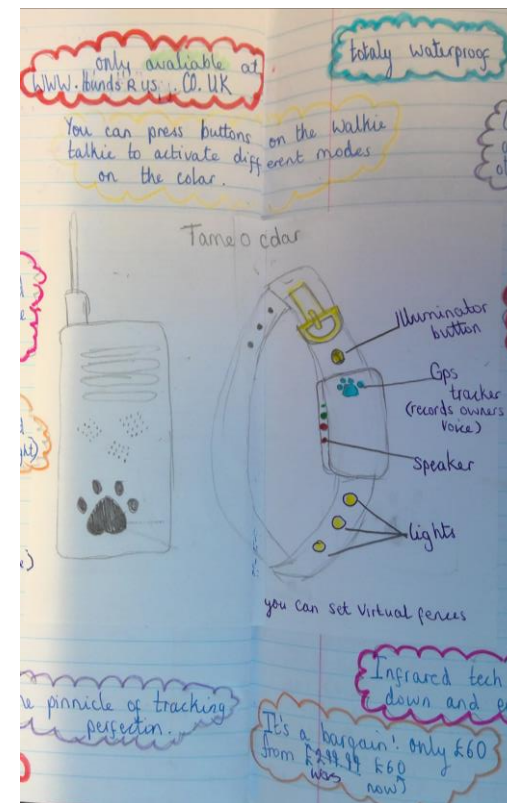 only avaliable at
WWW.HundsRus...CO.UK
totaly waterproof
You can press buttons on the Walkie
talkie to activate different modes
on the colar.
Tame o colar
Illuminator
button
Gps
tracker
(records owners
Voice)
Speaker
lights
you can set Virtual fences
pinnicle of tracking
perfection.
Infrared tech
down and
It's a bargain! only £60
from £299.99 £60
was now)